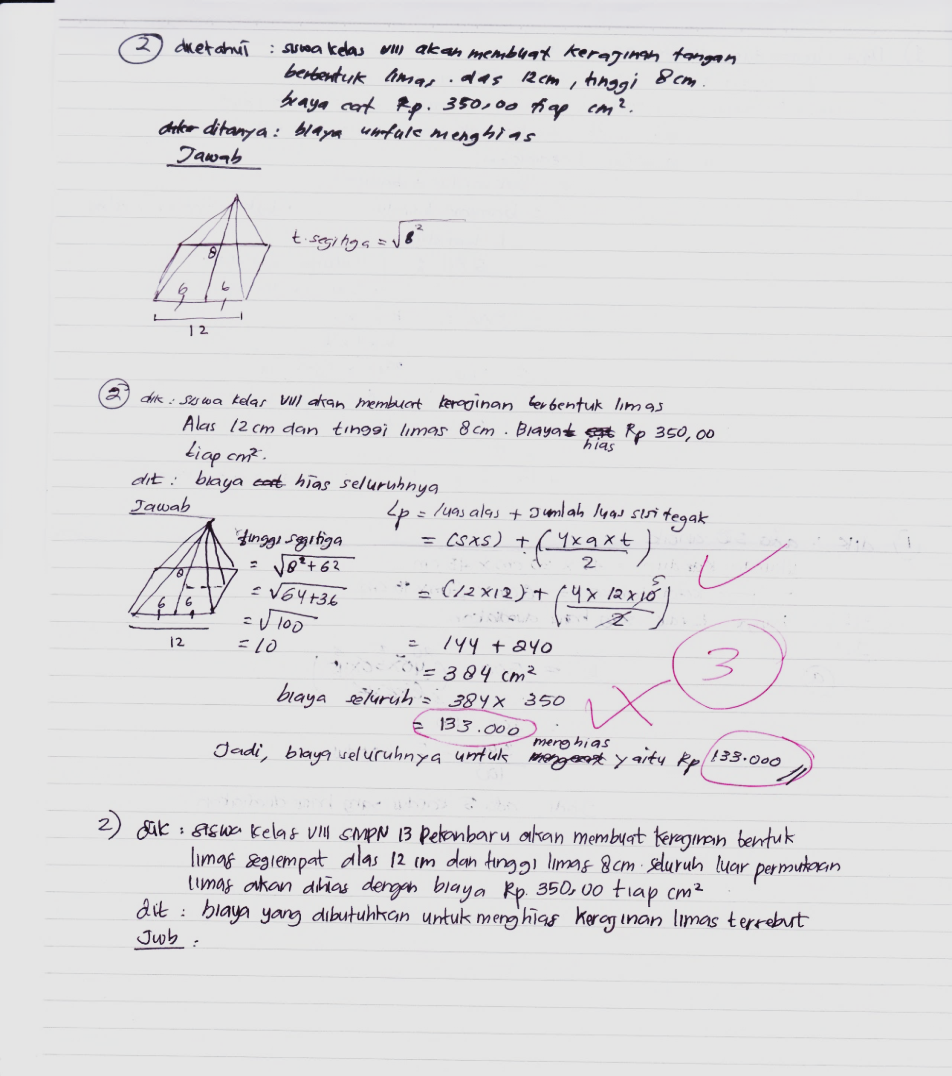 2 diketahui : siswa kelas VIII akan membuat kerajinan tangan
berbentuk limas . alas 12 cm , tinggi 8 cm .
biaya cat Rp. 350,00 tiap cm².
ditanya : biaya untuk menghias
Jawab
t. segitiga = √8²
8
6 6
12
2 dik : siswa kelas VIII akan membuat kerajinan berbentuk limas
Alas 12 cm dan tinggi limas 8 cm . Biaya cat hias Rp 350,00
tiap cm².
dit : biaya cat hias seluruhnya
Jawab
Lp = luas alas + Jumlah luas sisi tegak
tinggi segitiga = (s×s) + (4×a×t / 2)
= √8²+6²
= √64+36 = (12×12) + (4× 12×10 5 / 2)
= √100
= 10 = 144 + 240
8
6 6
12
= 384 cm²
3
biaya seluruh = 384 × 350
= 133.000
Jadi, biaya seluruhnya untuk menghias yaitu Rp 133.000 //
2) dik : siswa kelas VIII SMPN 13 Pekanbaru akan membuat kerajinan bentuk
limas segiempat alas 12 cm dan tinggi limas 8 cm . seluruh luar permukaan
limas akan dihias dengan biaya Rp. 350,00 tiap cm²
dit : biaya yang dibutuhkan untuk menghias kerajinan limas tersebut
Jwb :